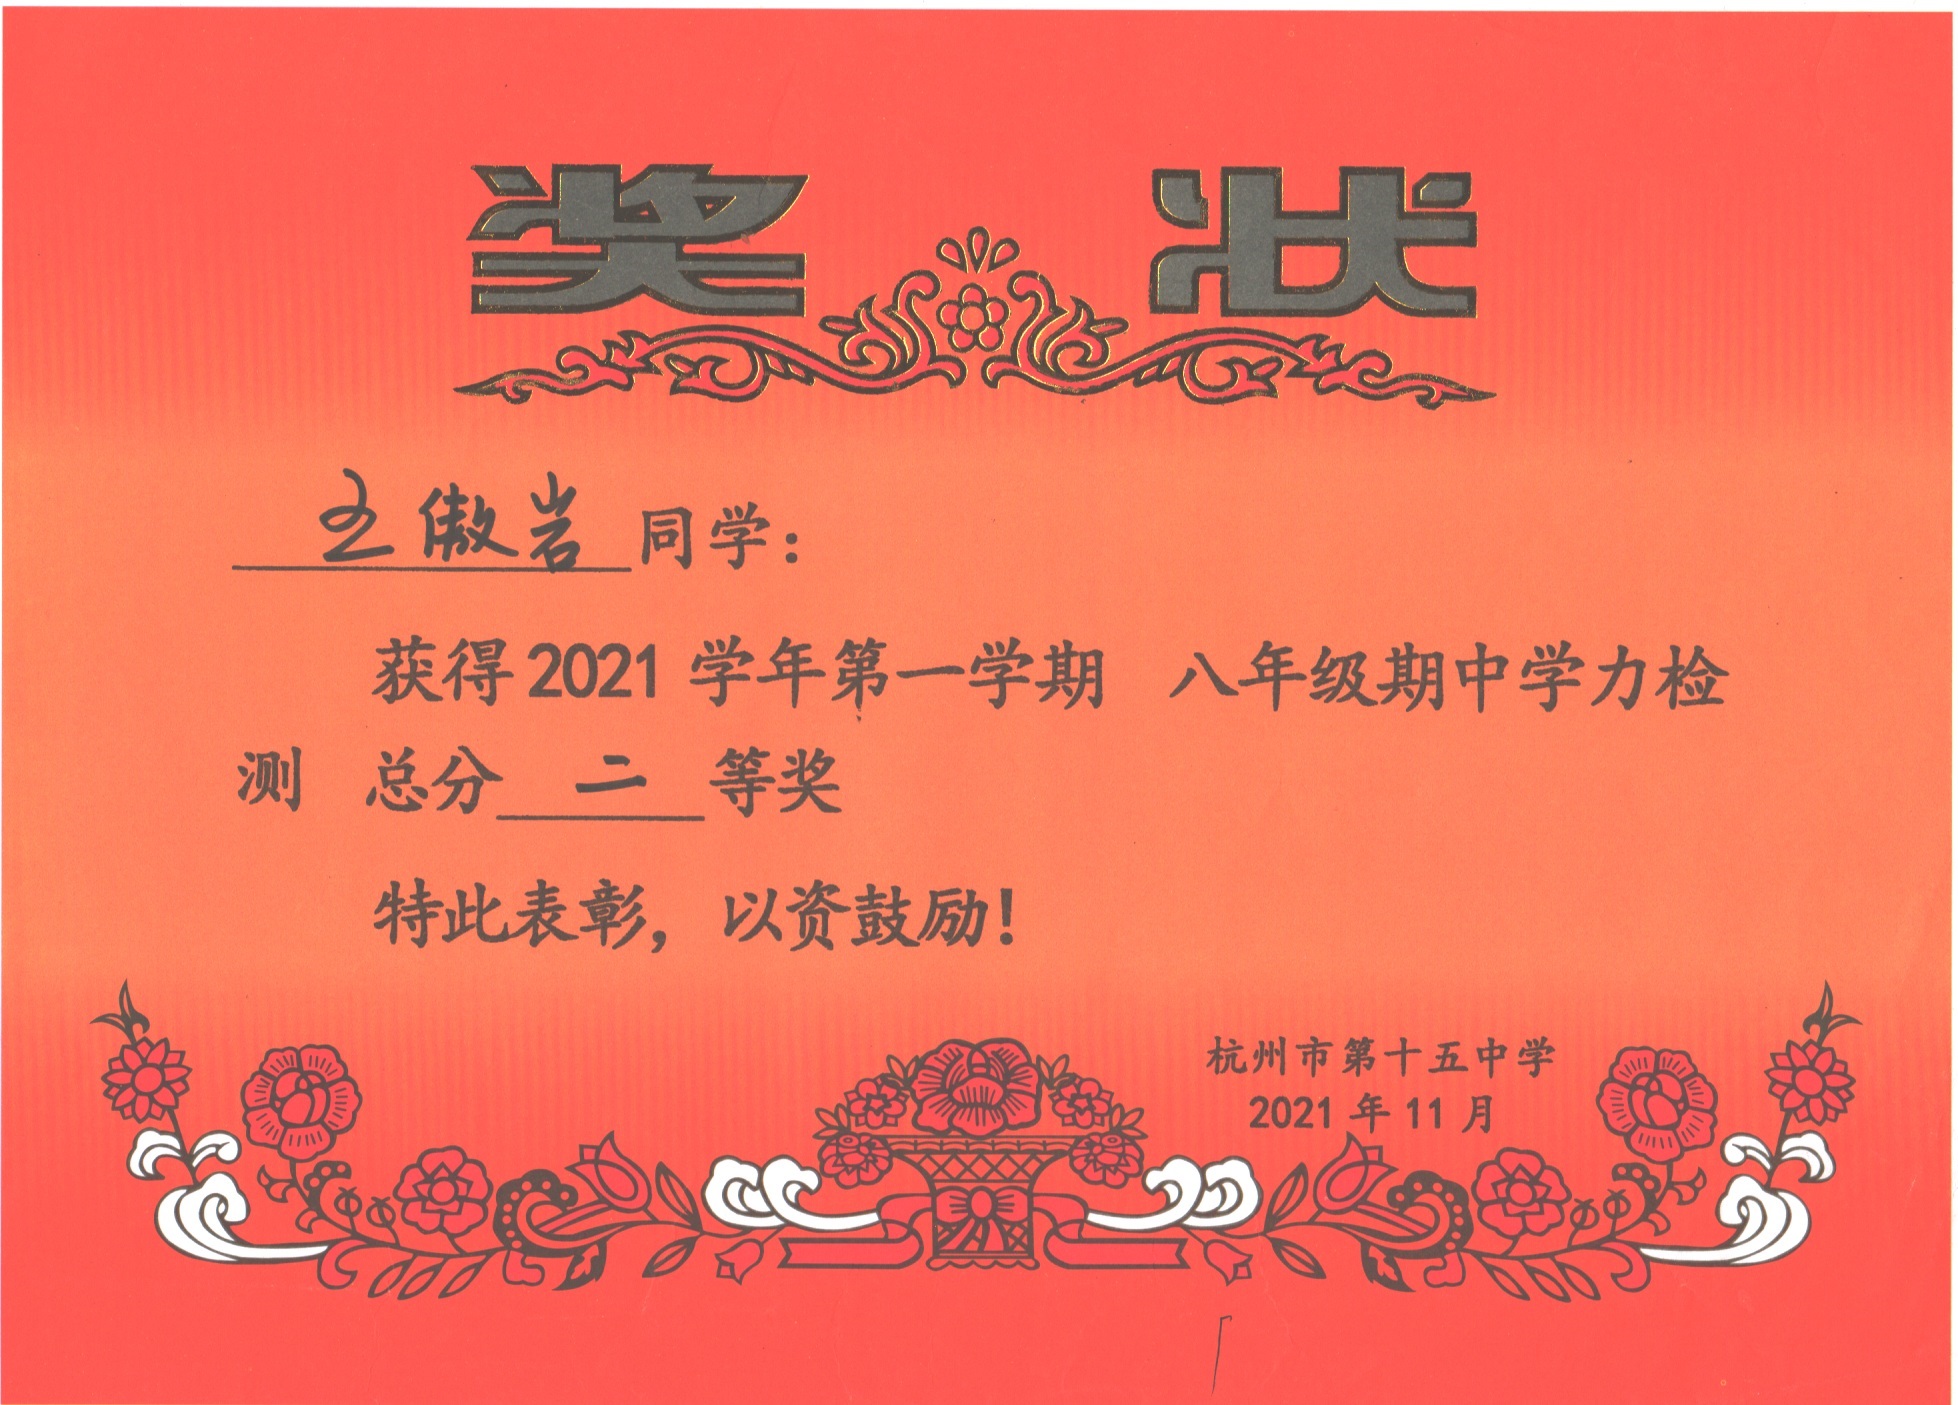 奖 状
王傲岩 同学：
获得 2021 学年第一学期 八年级期中学力检
测 总分 二 等奖
特此表彰，以资鼓励！
杭州市第十五中学
2021 年 11 月